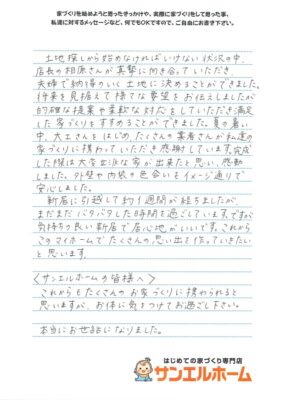 家づくりを始めようと思ったきっかけや、実際に家づくりをして思った事、
私達に対するメッセージなど、何でもOKですので、ご自由にお書き下さい。
土地探しから始めなければいけない状況の中、
店長の相原さんが真摯に向き合っていただき、
夫婦で納得のいく土地に決めることができました。
将来を見据えて様々な要望をお伝えしましたが
的確な提案や柔軟な対応をしていただき満足
した家づくりをすすめることができました。夏の暑い
中、大工さんをはじめ、たくさんの業者さんが私達の
家づくりに携わっていただき感謝しています。完成
した際は大変立派な家が出来たと思い、感動
しました。外壁や内装の色合いもイメージ通りで
安心しました。
新居に引越して約1週間が経ちましたが、
まだまだバタバタした時間を過ごしています。ですが、
気持ちの良い新居で居心地がいいです。これから
このマイホームでたくさんの思い出を作っていきたい
と思います。
〈サンエルホームの皆様へ〉
これからもたくさんのお家づくりに携わられると
思いますが、お体に気をつけてお過ごし下さい。
本当にお世話になりました。
はじめての家づくり専門店
サンエルホーム